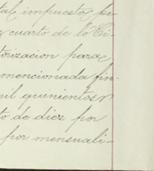 tal impuesta
y cuarto de la
torizacion para
mencionada fin
mil quinientos
to de diez por
por mensuali-